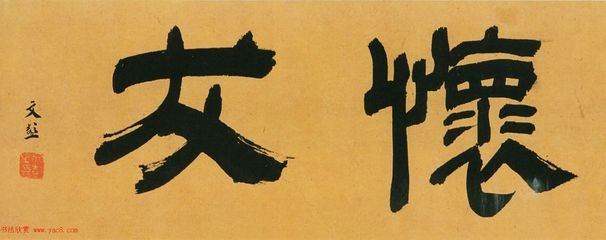 懷友
文
书法欣赏 www.yac8.com